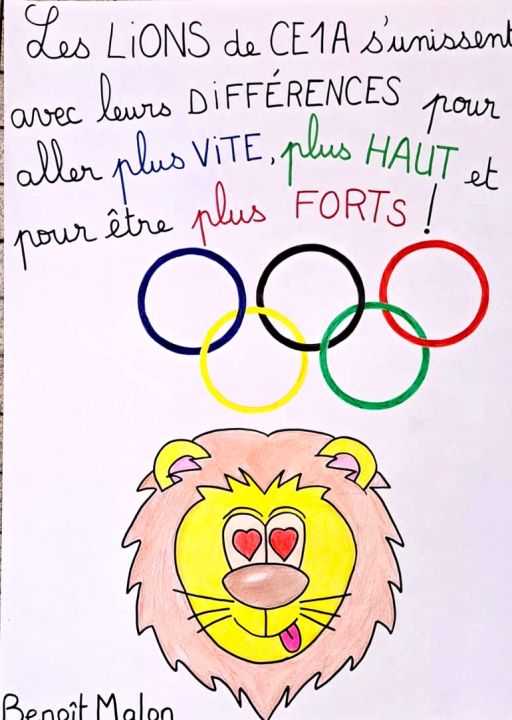 Les LiONS de CE1A s'unissent
avec leurs DiFFÉRENCES pour
aller plus ViTE, plus HAUT et
pour être plus FORTS !
Benoît Malon